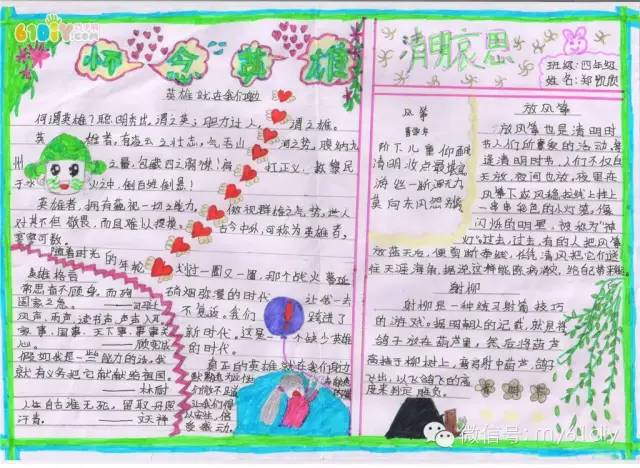 61DIY
怀念英雄
英雄就在我们身边
何谓英雄？聪明秀出，谓之英；胆力过人，谓之雄。
英雄者，有凌云之壮志，气吞山河之势，腹纳九
州之量，包藏四海胸襟！肩扛正义，救黎民
于水火之中，
英雄者，拥有藐视一切之能力，傲视群雄之气势，世人
对其不但敬畏，而且难以捉摸。古今中外，可称为英雄者，
寥寥可数。
随着时光的年轮划过一圈又一圈，那个战火蔓延
硝烟弥漫的时代，让我一去
不复返。我们跨进了
新时代。这是一个缺少英雄
的时代。
真正的英雄就在我们身边
英雄格言
常思奋不顾身，而殉
国家之急。
风声，雨声，读书声，声声入耳；
家事，国事，天下事，事事关
心。——顾宪成
假如我是一些能力的话，我
就有义务把它献给祖国。
——林耐
人生自古谁无死，留取丹心照
汗青。
清明哀思
班级：四年级
姓名：郑凯欣
风筝
阶下儿童仰面
清明妆点最堪
游丝一断浑无力
莫向东风怨别
放风筝
放风筝也是清明时
节人们所喜爱的活动，每
逢清明时节，人们不仅白
天放，夜间也放，夜里在
风筝下或风稳拉线上挂上
一串串彩色的小灯笼，像
闪烁的明星，被称为“神
灯”。过去，有的人把风筝
放蓝天后，便剪断牵线，任凭清风把它们送
往天涯海角，据说这样能除病消灾，给自己带来好运。
射柳
射柳是一种练习射箭技巧
的游戏。据明朝人的记载，就是将
鸽子放在葫芦里，然后将葫芦
高挂于柳树上，弯弓射中葫芦，鸽子
飞出，以飞鸽飞的高
度来判定胜负。
微信号: my61diy